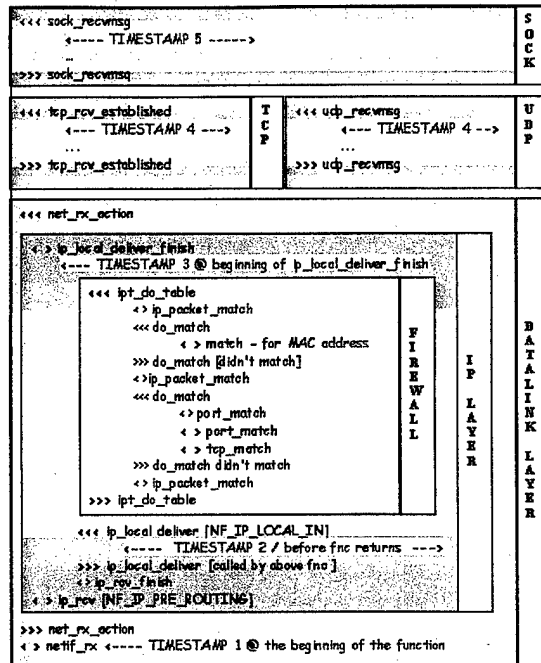 <<< sock_recvmsg
<---- TIMESTAMP 5 ----->
...
>>> sock_recvmsg
SOCK
<<< tcp_rcv_established
<--- TIMESTAMP 4 --->
...
>>> tcp_rcv_established
TCP
<<< udp_recvmsg
<--- TIMESTAMP 4 -->
...
>>> udp_recvmsg
UDP
<<< net_rx_action
< > ip_local_deliver_finish
<--- TIMESTAMP 3 @ beginning of ip_local_deliver_finish
<<< ipt_do_table
<> ip_packet_match
<<< do_match
< > match - for MAC address
>>> do_match [didn't match]
<>ip_packet_match
<<< do_match
<> port_match
< > port_match
< > tcp_match
>>> do_match didn't match
<> ip_packet_match
>>> ipt_do_table
FIREWALL
<<< ip_local deliver [NF_IP_LOCAL_IN]
<---- TIMESTAMP 2 / before fnc returns --->
>>> ip_local_deliver [called by above fnc]
<> ip_rcv_finish
< > ip_rcv [NF_IP_PRE_ROUTING]
IP LAYER
>>> net_rx_action
< > netif_rx <---- TIMESTAMP 1 @ the beginning of the function
DATALINK LAYER